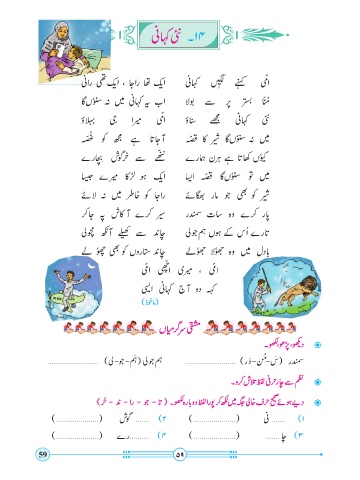 ۱۴۔ نئی کہانی
امّی کہنے لگیں کہانی
ایک تھا راجا ، ایک تھی رانی
مُنّا بستر پر سے بولا
اب یہ کہانی میں نہ سنوں گا
نئی کہانی مجھے سناؤ
امّی میرا جی بہلاؤ
میں نہ سنوں گا شیر کا قصّہ
آجاتا ہے مجھ کو غصّہ
کیوں کھاتا ہے ہرن ہمارے
ننّھے سے خرگوش بچارے
میں تو سنوں گا قصّہ ایسا
ایک ہو لڑکا میرے جیسا
شیر کو بھی جو مار بھگائے
راجا کو خاطر میں نہ لائے
پار کرے وہ سات سمندر
سیر کرے آکاش پر جاکر
تارے اُس کے ہوں ہم جولی
چاند سے کھیلے آنکھ مچولی
بادل میں وہ جھولا جھولے
چاند ستاروں کو بھی چھولے
امّی ، میری اچّھی امّی
کہہ دو آج کہانی ایسی
(ماخوذ)
مشقی سرگرمیاں
دیکھو، پڑھو، لکھو۔
سمندر (سَ-مُن-دَر) .................. ہم جولی (ہم-جو-لی) ..................
نظم سے چار حرفی لفظ تلاش کرو۔
دیے ہوئے صحیح حرف خالی جگہ میں لکھ کر پورا لفظ دوبارہ لکھو۔ (تا - جو - را - ند - خر)
۱) ...... نی (..................) ۲) ...... گوش (..................)
۳) چا ...... (..................) ۴) ...... رے (..................)
59
۵۹